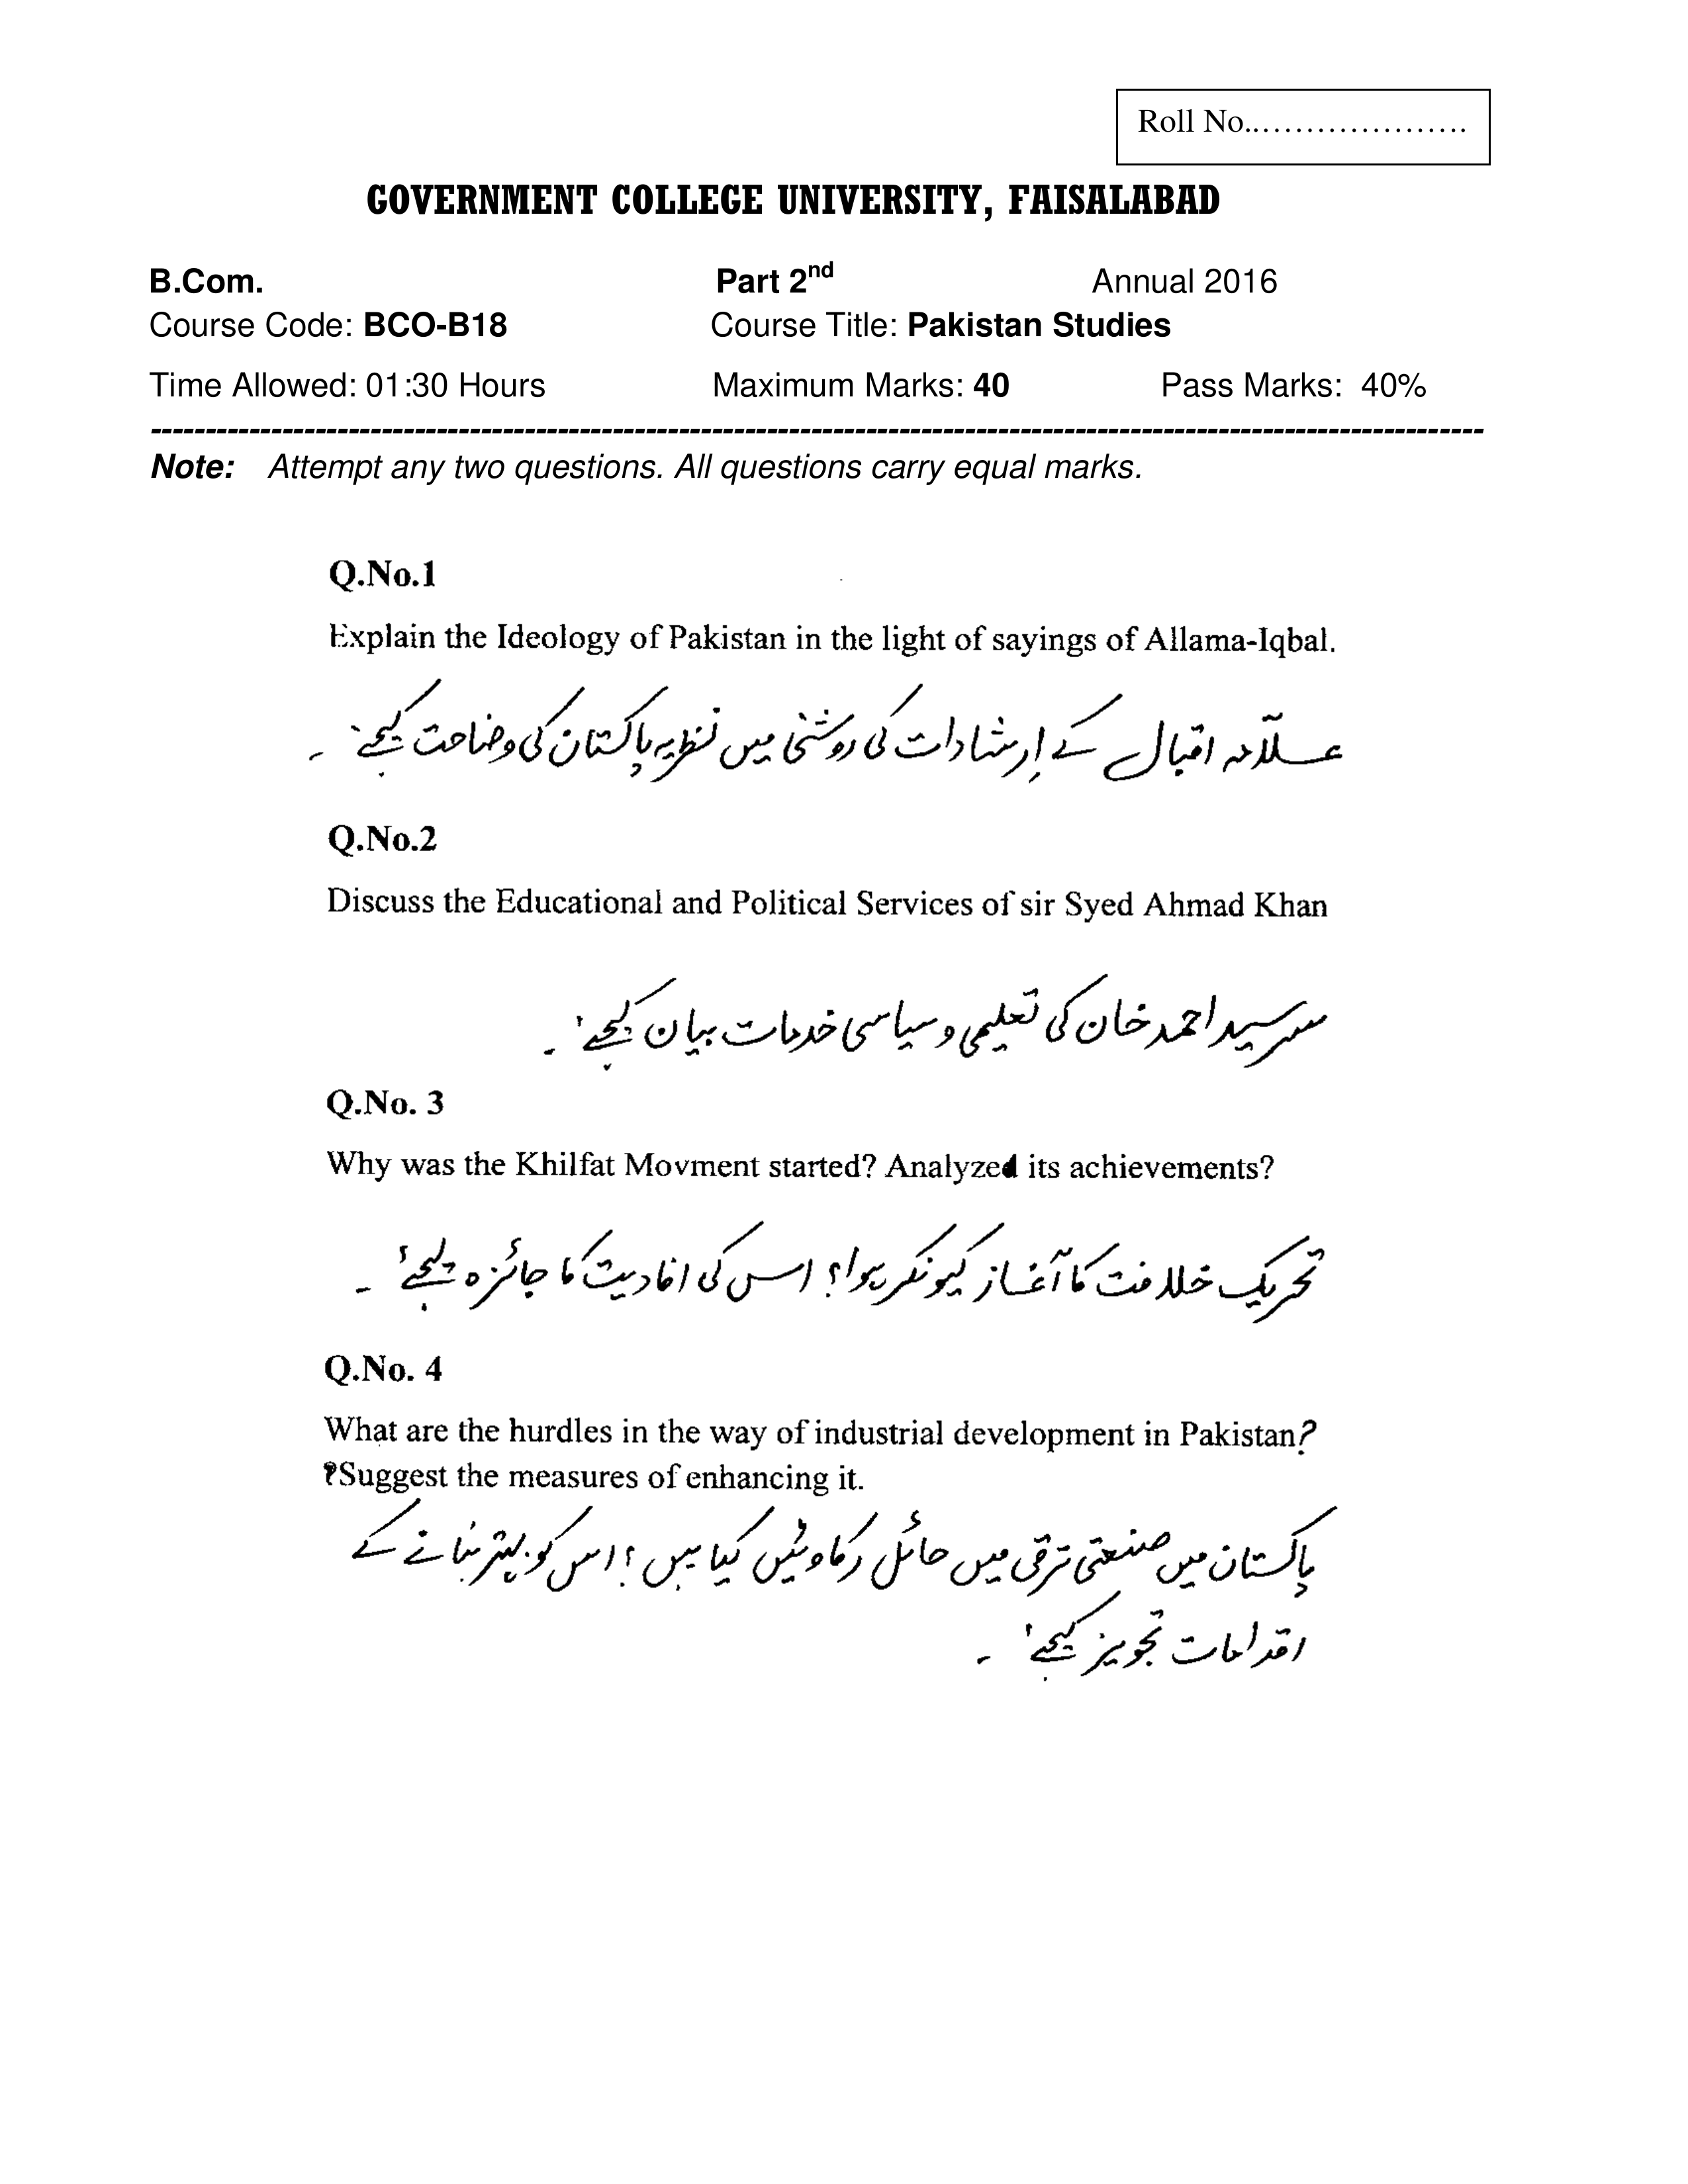 Roll No....................
GOVERNMENT COLLEGE UNIVERSITY, FAISALABAD
B.Com. Part 2nd Annual 2016
Course Code: BCO-B18 Course Title: Pakistan Studies
Time Allowed: 01:30 Hours Maximum Marks: 40 Pass Marks: 40%
Note: Attempt any two questions. All questions carry equal marks.
Q.No.1
Explain the Ideology of Pakistan in the light of sayings of Allama-Iqbal.
علامہ اقبال کے اِرشادات کی روشنی میں نظریہ پاکستان کی وضاحت کیجئے ۔
Q.No.2
Discuss the Educational and Political Services of sir Syed Ahmad Khan
سرسید احمد خان کی تعلیمی و سیاسی خدمات بیان کیجئے ۔
Q.No. 3
Why was the Khilfat Movment started? Analyzed its achievements?
تحریک خلافت کا آغاز کیونکر ہوا؟ اس کی افادیت کا جائزہ لیجئے ۔
Q.No. 4
What are the hurdles in the way of industrial development in Pakistan?
?Suggest the measures of enhancing it.
پاکستان میں صنعتی ترقی میں حائل رکاوٹیں کیا ہیں ؟ اس کو بہتر بنانے کے
اقدامات تجویز کیجئے ۔